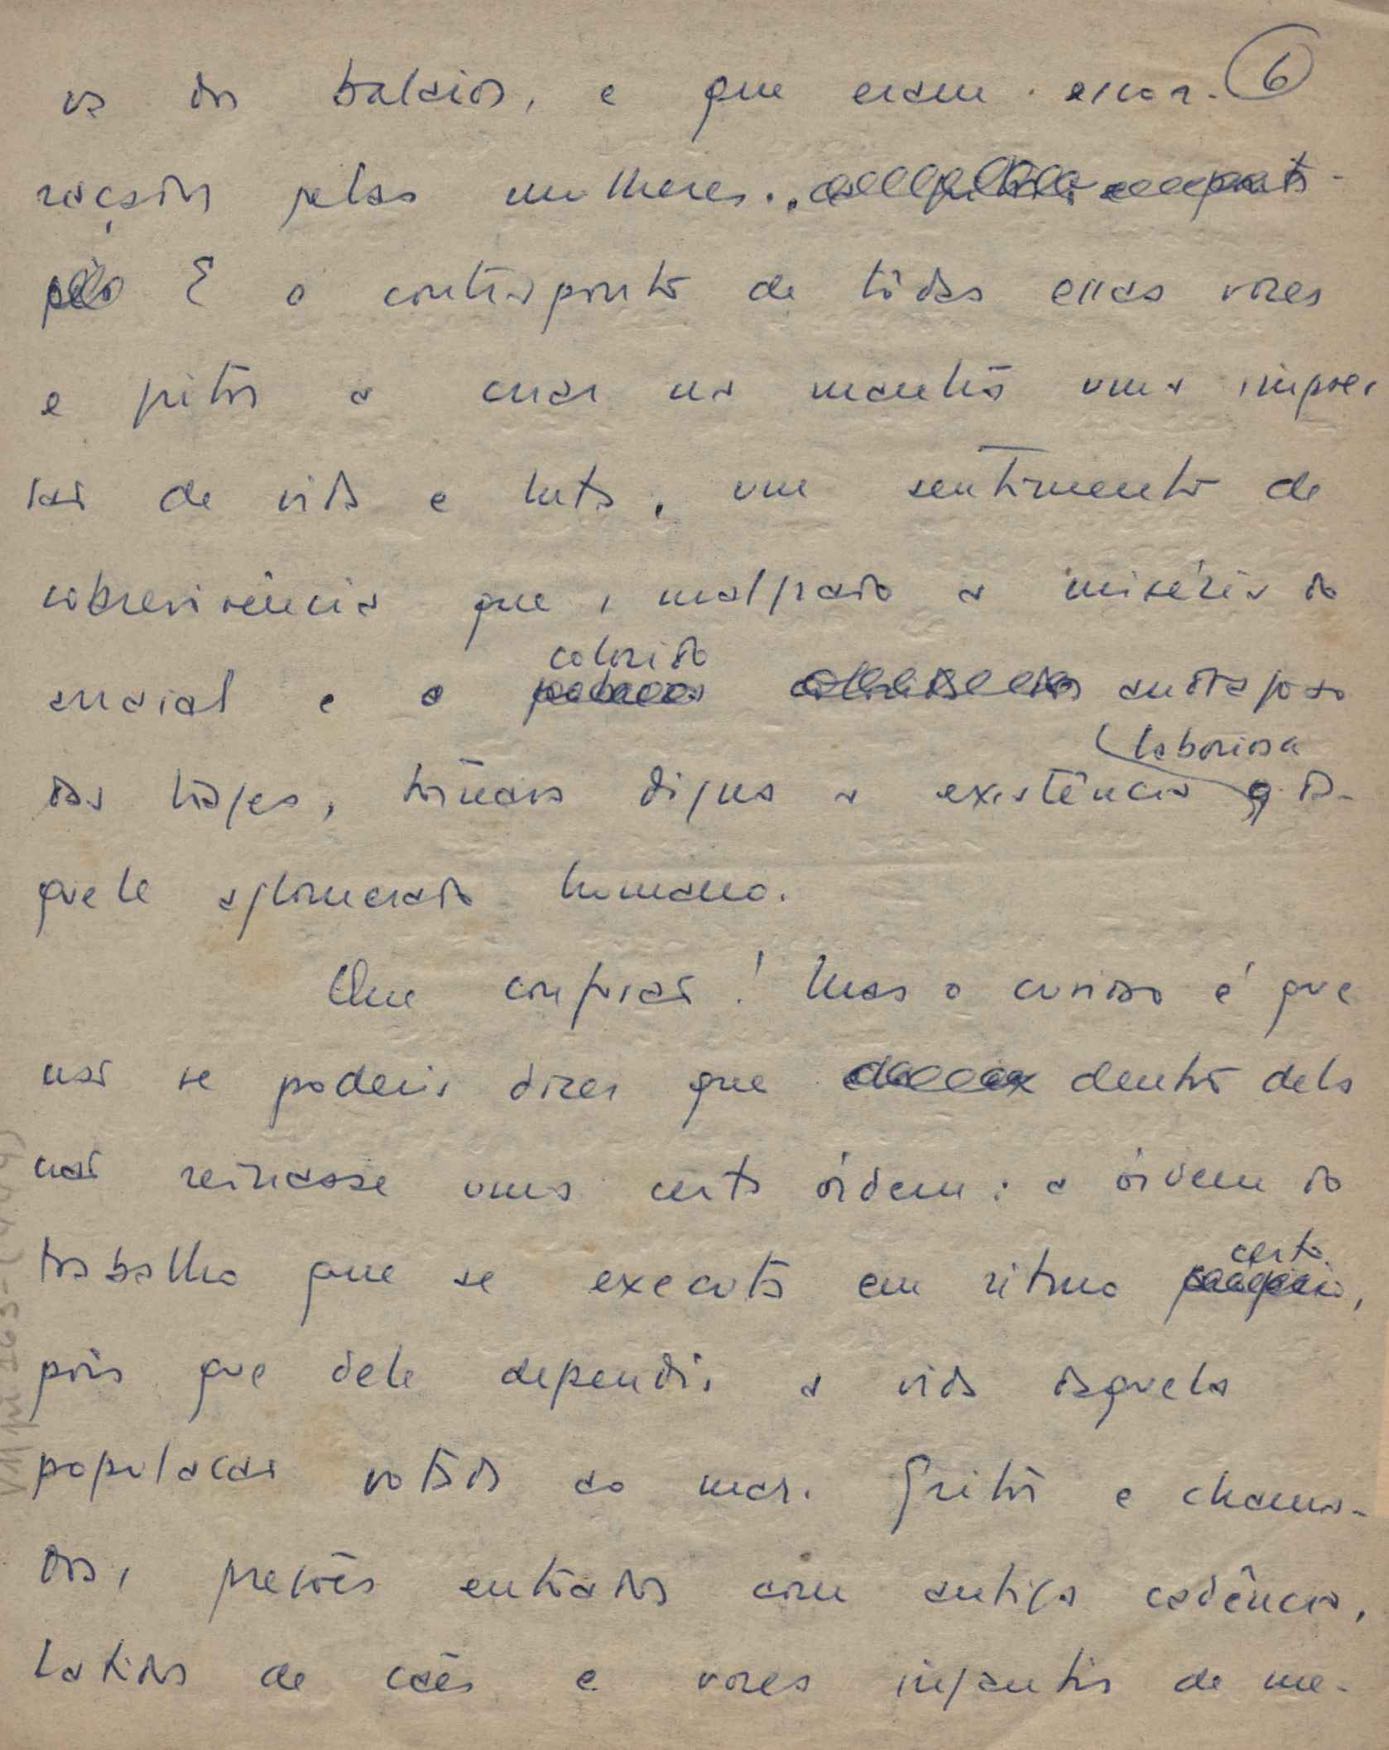 os dos balaios, e que eram escor- 6
raçados pelas mulheres.
E o contraponto de tôdas essas vozes
e gritos a criar na manhã uma impres
são de vida e luta, um sentimento de
sobrevivência que, malgrado a miséria do
arraial e o andrajoso
colorido
das trajes, tornava digna a existência da-
laboriosa
quele aglomerado humano.
Que confusão! Mas o curioso é que
não se poderia dizer que dentro dela
não reinasse uma certa órdem: a órdem do
trabalho que se executa em ritmo
certo,
pois que dele dependia a vida daquela
população votada ao mar. Gritos e chama-
dos, pregões entoados com antiga cadência,
latidos de cães e vozes infantis de me-